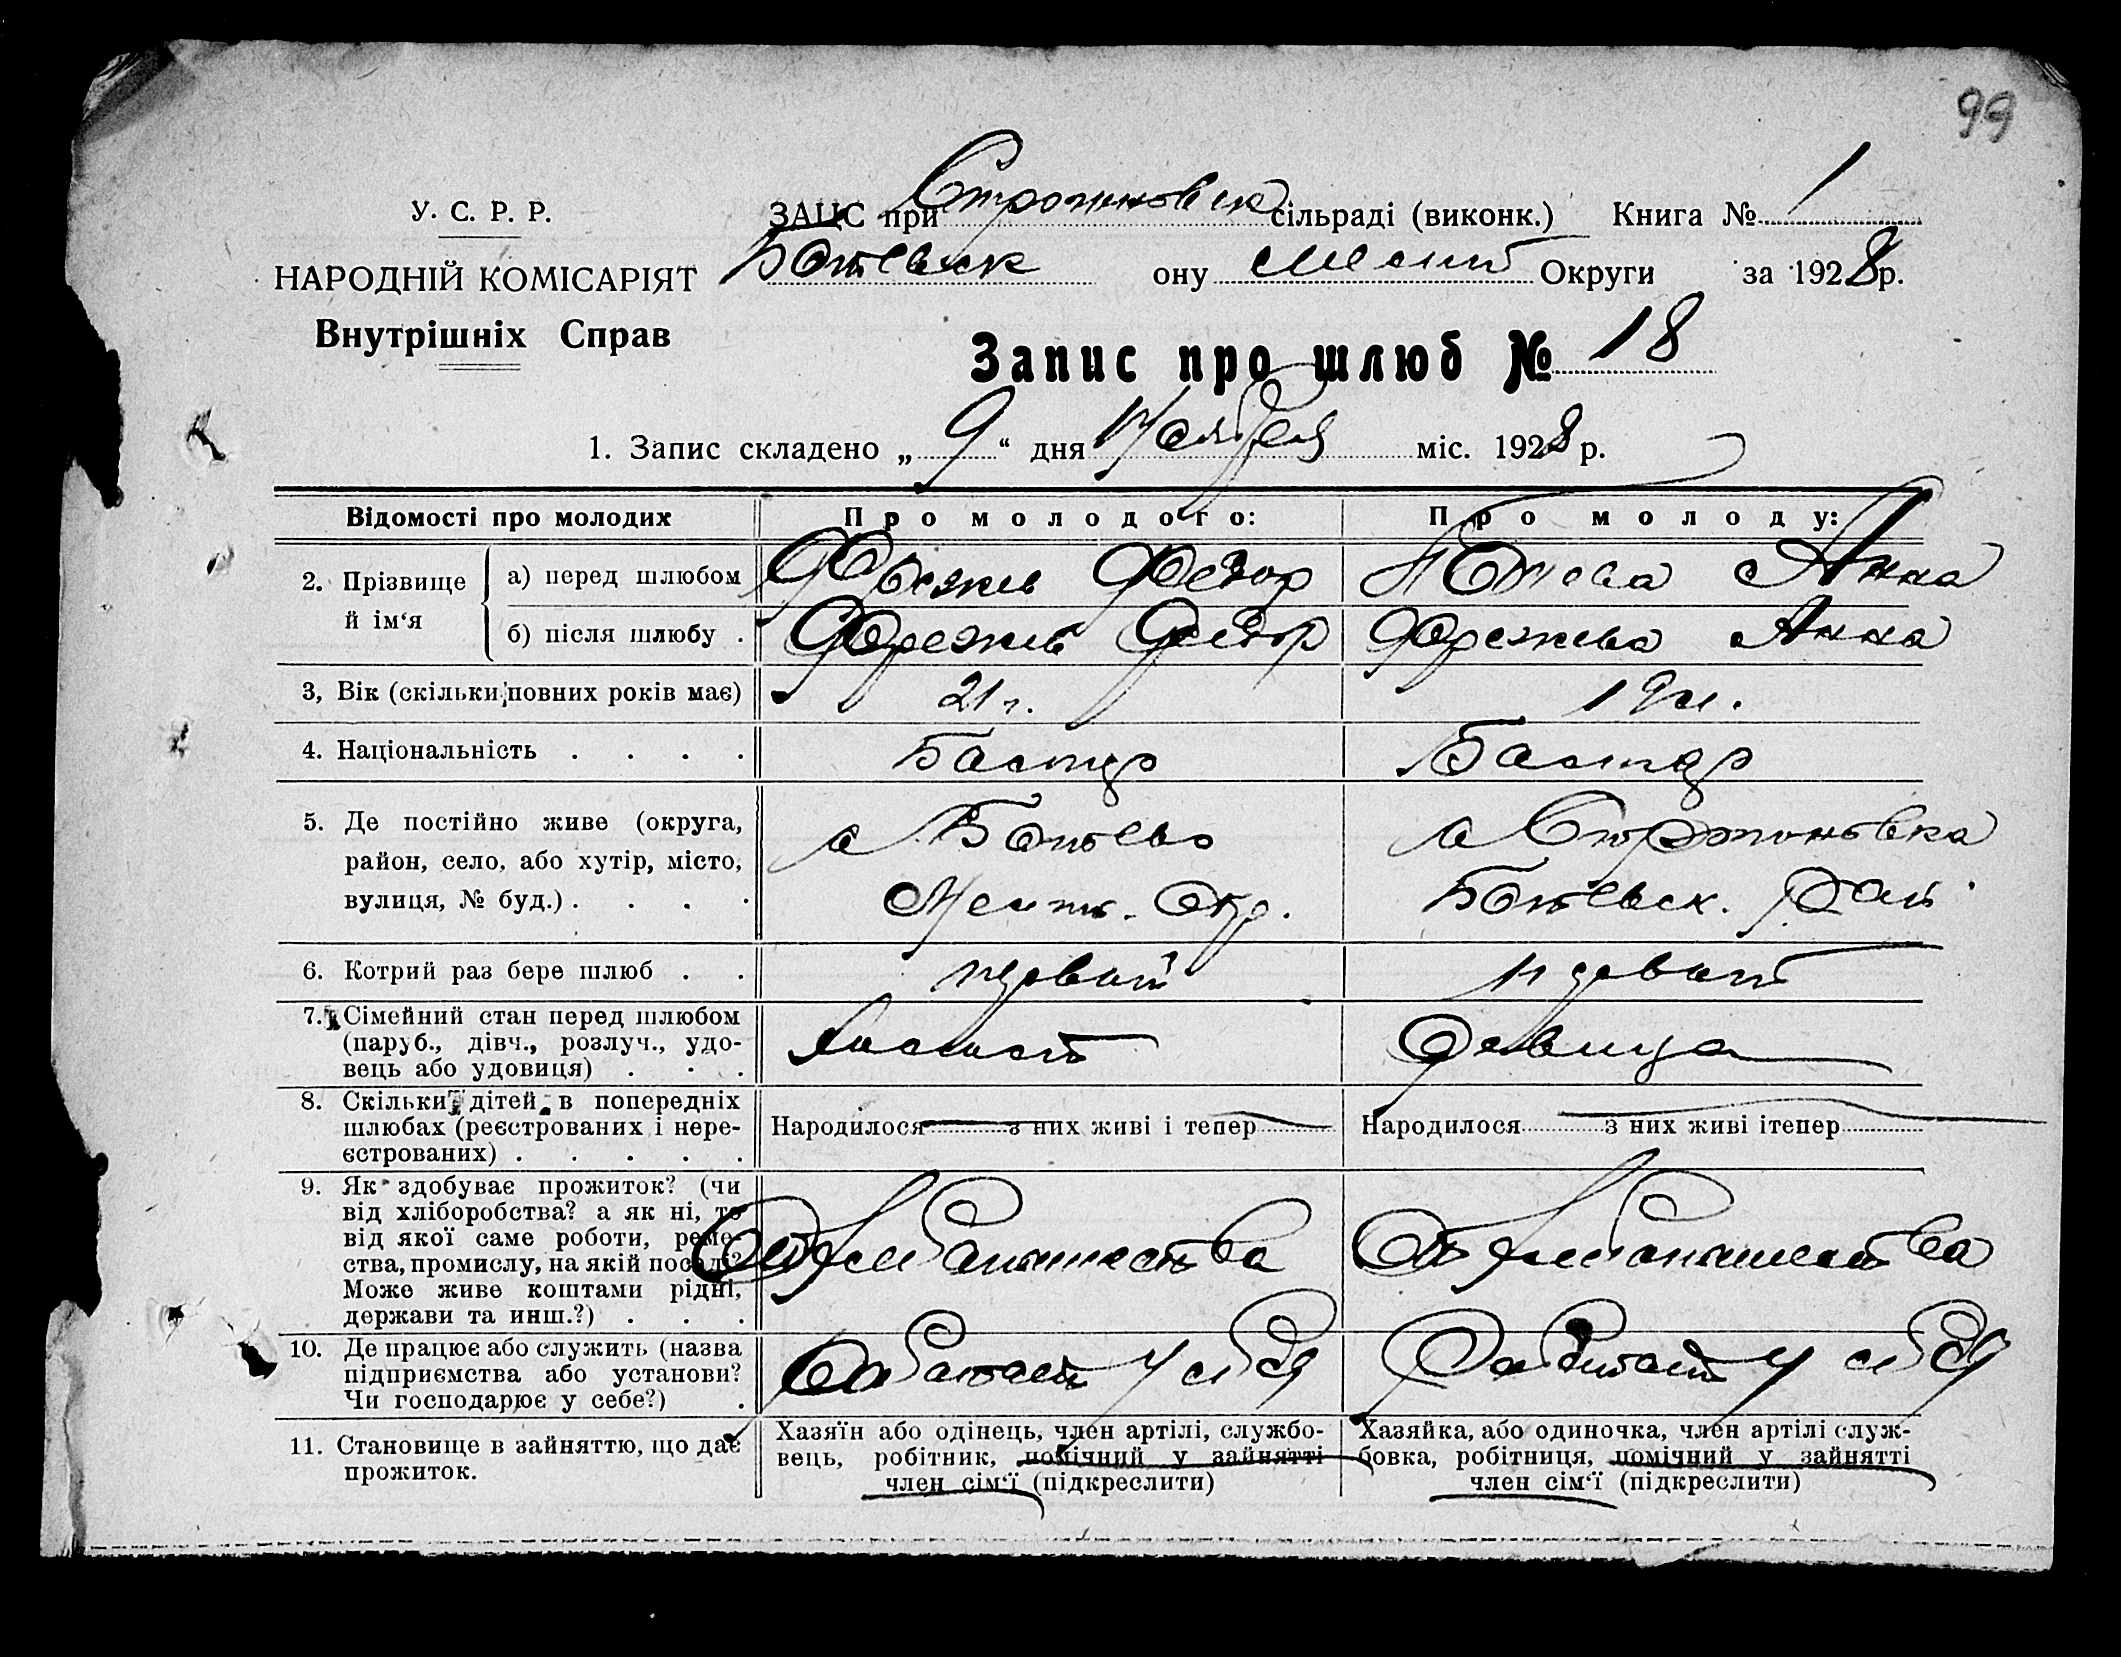 99
У. С. Р. Р.
НАРОДНІЙ КОМІСАРІЯТ
Внутрішніх Справ
ЗАЦС при сільраді (виконк.) Книга № 1
Ботевск ону Округи за 1928 р.
Запис про шлюб № 18
1. Запис складено „ 9 “ дня Ноября міс. 1928 р.
Відомості про молодих
Про молодого:
Про молоду:
2. Прізвище й ім‘я
а) перед шлюбом
Федор
Анна
б) після шлюбу .
Федор
Анна
3, Вік (скільки повних років має)
21 г.
19 л.
4. Національність . . . .
Болгар
Болгар
5. Де постійно живе (округа,
район, село, або хутір, місто,
вулиця, № буд.) . . . .
с Ботево
Мелит. Окр.
с
Ботевск. Рай
6. Котрий раз бере шлюб . .
первый
первый
7. Сімейний стан перед шлюбом
(паруб., дівч., розлуч., удо-
вець або удовиця) . . .
Холост
Девица
8. Скільки дітей в попередніх
шлюбах (реєстрованих і нере-
єстрованих) . . . . .
Народилося з них живі і тепер
Народилося з них живі ітепер
9. Як здобуває прожиток? (чи
від хліборобства? а як ні, то
від якої саме роботи, реме-
ства, промислу, на якій посаді?
Може живе коштами рідні,
держави та инш.?) . . .
От хлебопашества
От хлебопашества
10. Де працює або служить (назва
підприємства або установи?
Чи господарює у себе?) .
Работает у себя
Работает у себя
11. Становище в зайняттю, що дає
прожиток.
Хазяїн або одінець, член артілі, службо-
вець, робітник, помічний у зайнятті
член сім‘ї (підкреслити)
Хазяйка, або одиночка, член артілі служ-
бовка, робітниця, помічний у зайнятті
член сім‘ї (підкреслити)